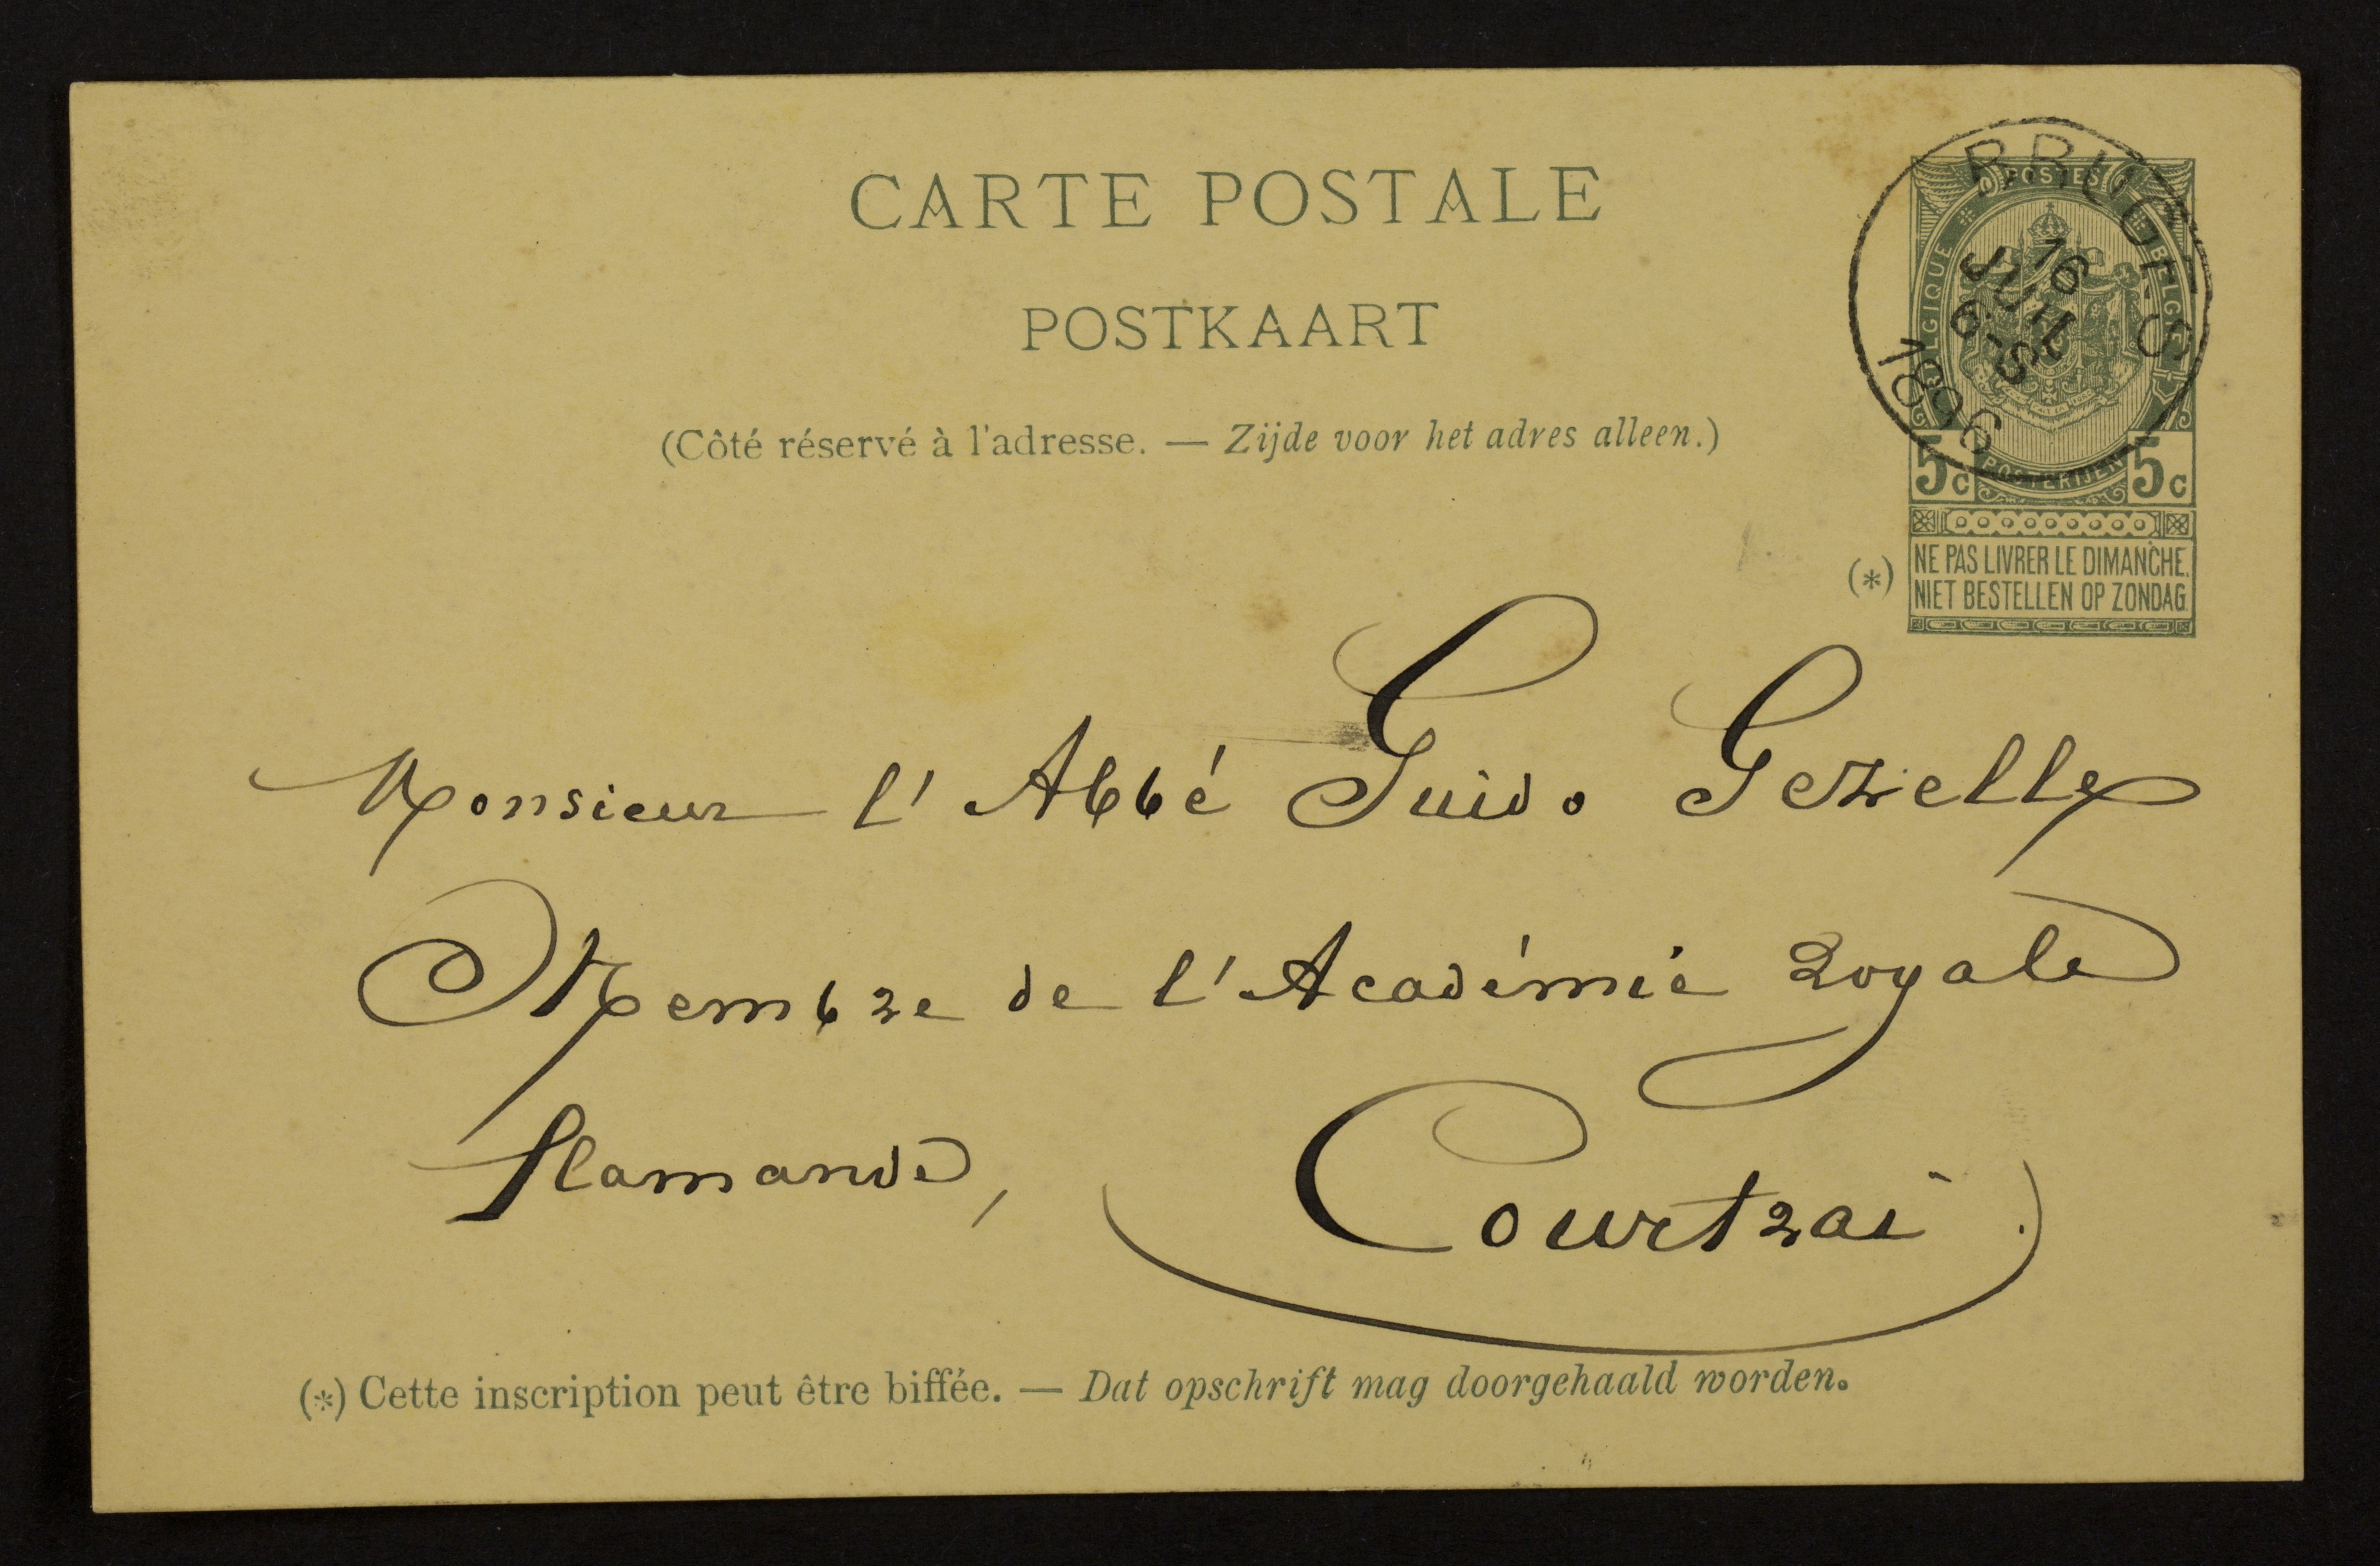 CARTE POSTALE
POSTKAART
(Côté réservé à l'adresse. — Zijde voor het adres alleen.)
BRUGES
16
JUIL
6-S
1896
POSTES
BELGIQUE
BELGIË
POSTERIJEN
5c 5c
(*) NE PAS LIVRER LE DIMANCHE.
NIET BESTELLEN OP ZONDAG.
Monsieur l'Abbé Guido Gezelle
Membre de l'Académie royale
flamande, Courtrai.
(*) Cette inscription peut être biffée. — Dat opschrift mag doorgehaald worden.